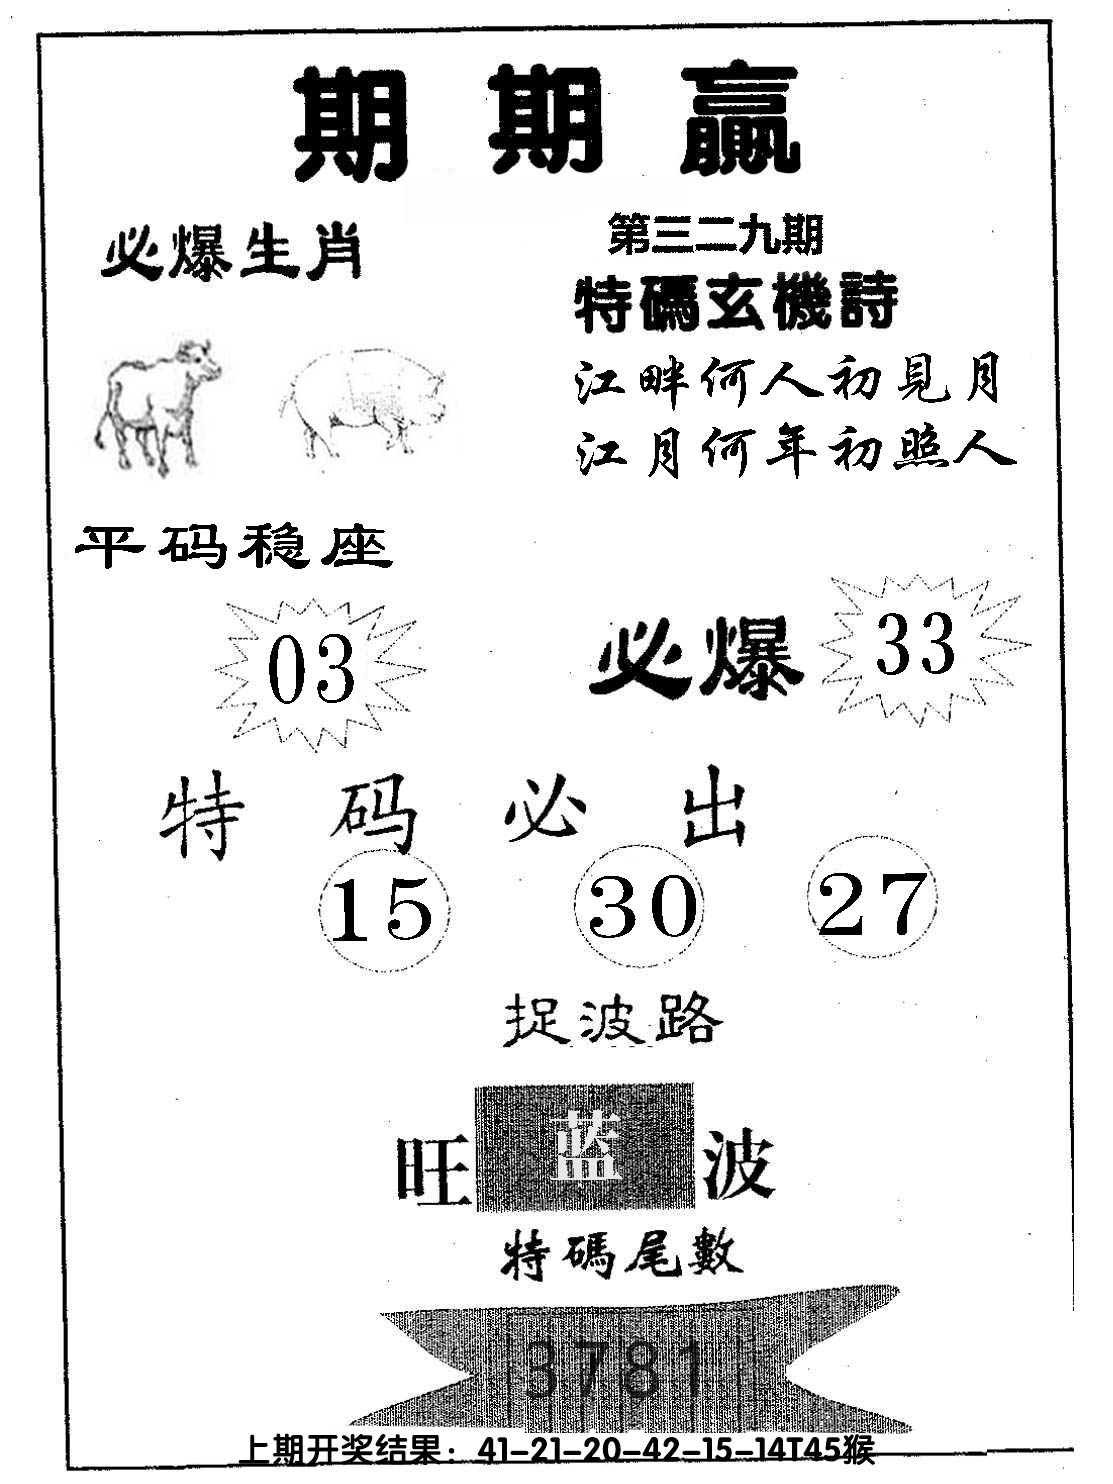 期期赢
必爆生肖
第三二九期
特碼玄機詩
江畔何人初見月
江月何年初照人
平码稳座
03
必爆 33
特码必出
15 30 27
捉波路
旺蓝波
特碼尾數
3781
上期开奖结果：41-21-20-42-15-14T45猴